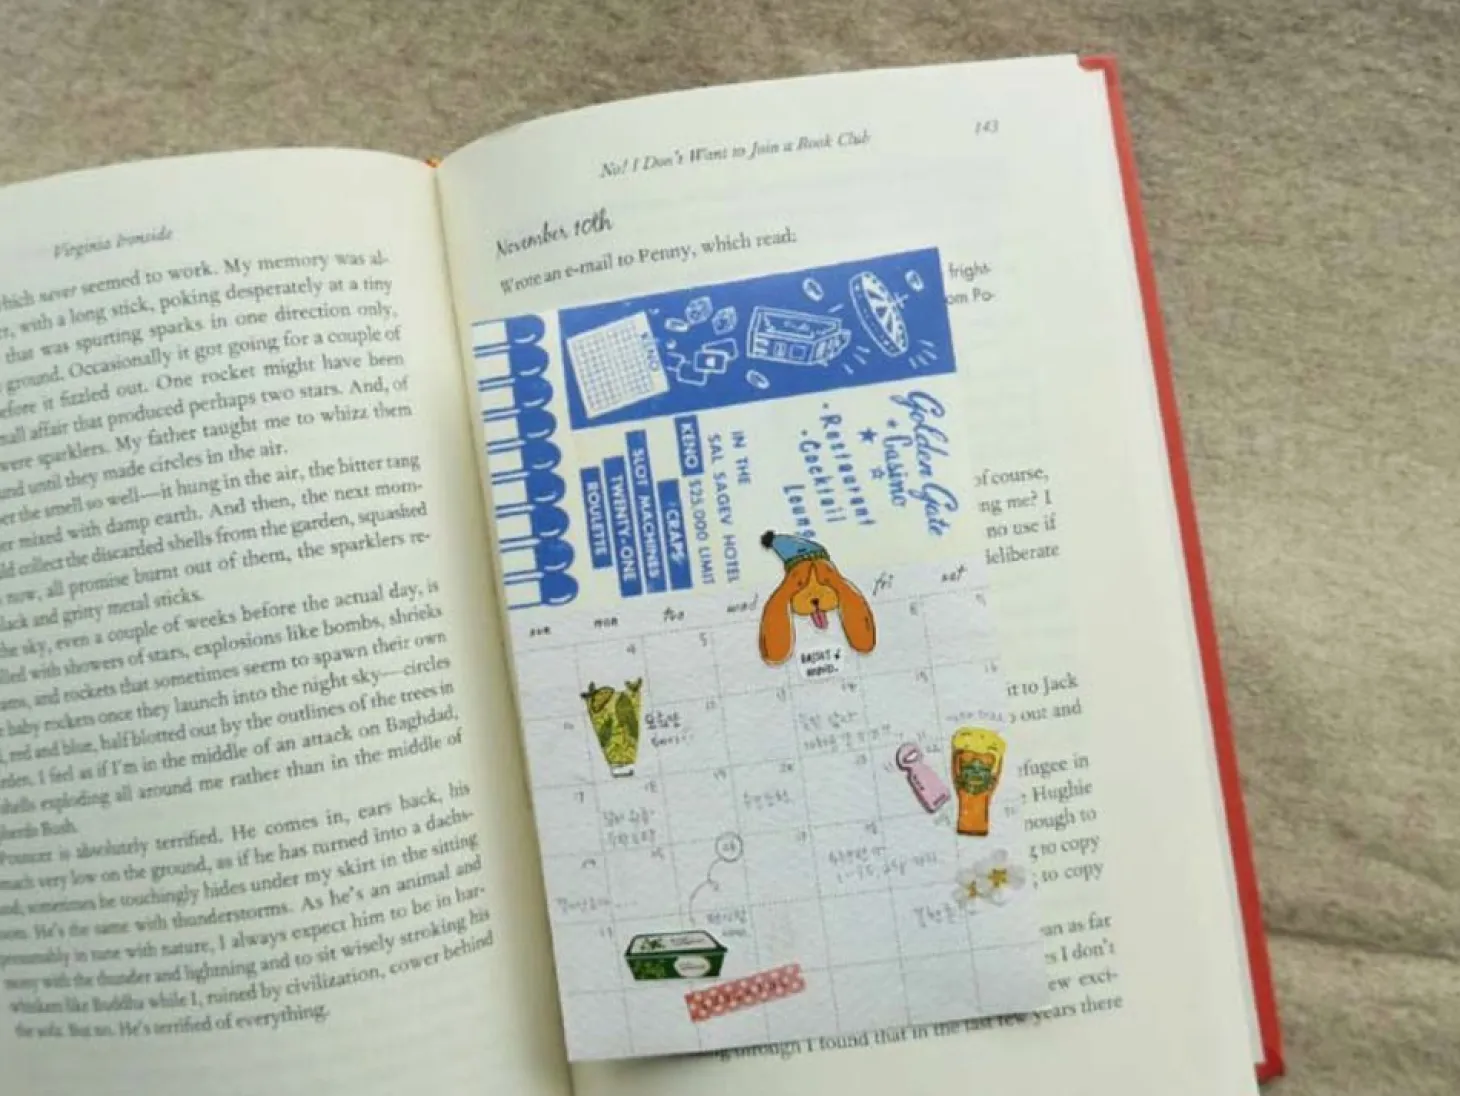 Virginia Ironside
which never seemed to work. My memory was al-
with a long stick, poking desperately at a tiny
that was spurting sparks in one direction only,
ground. Occasionally it got going for a couple of
efore it fizzled out. One rocket might have been
mall affair that produced perhaps two stars. And, of
were sparklers. My father taught me to whizz them
und until they made circles in the air.
er the smell so well—it hung in the air, the bitter tang
mixed with damp earth. And then, the next mom-
ld collect the discarded shells from the garden, squashed
now, all promise burnt out of them, the sparklers re-
lack and gritty metal sticks.
the sky, even a couple of weeks before the actual day, is
lled with showers of stars, explosions like bombs, shrieks
ams, and rockets that sometimes seem to spawn their own
baby rockets once they launch into the night sky—circles
, red and blue, half blotted out by the outlines of the trees in
rden. I feel as if I'm in the middle of an attack on Baghdad,
shells exploding all around me rather than in the middle of
herds Bush.
Pouncer is absolutely terrified. He comes in, ears back, his
mach very low on the ground, as if he has turned into a dachs-
und; sometimes he touchingly hides under my skirt in the sitting
oom. He's the same with thunderstorms. As he's an animal and
presumably in tune with nature, I always expect him to be in har-
mony with the thunder and lightning and to sit wisely stroking his
whiskers like Buddha while I, ruined by civilization, cower behind
the sofa. But no. He's terrified of everything.
No! I Don't Want to Join a Book Club
143
November 10th
Wrote an e-mail to Penny, which read:
fright-
om Po-
KENO
Golden Gate
Casino
Restaurant
Cocktail
Loung
IN THE
SAL SAGEV HOTEL
KENO $25,000 LIMIT
CRAPS
SLOT MACHINES
TWENTY-ONE
ROULETTE
of course,
ng me? I
no use if
deliberate
sun mon tue wed fri sat
it to Jack
out and
efugee in
Hughie
nough to
to copy
to copy
an as far
s I don't
ew exci-
through I found that in the last few years there